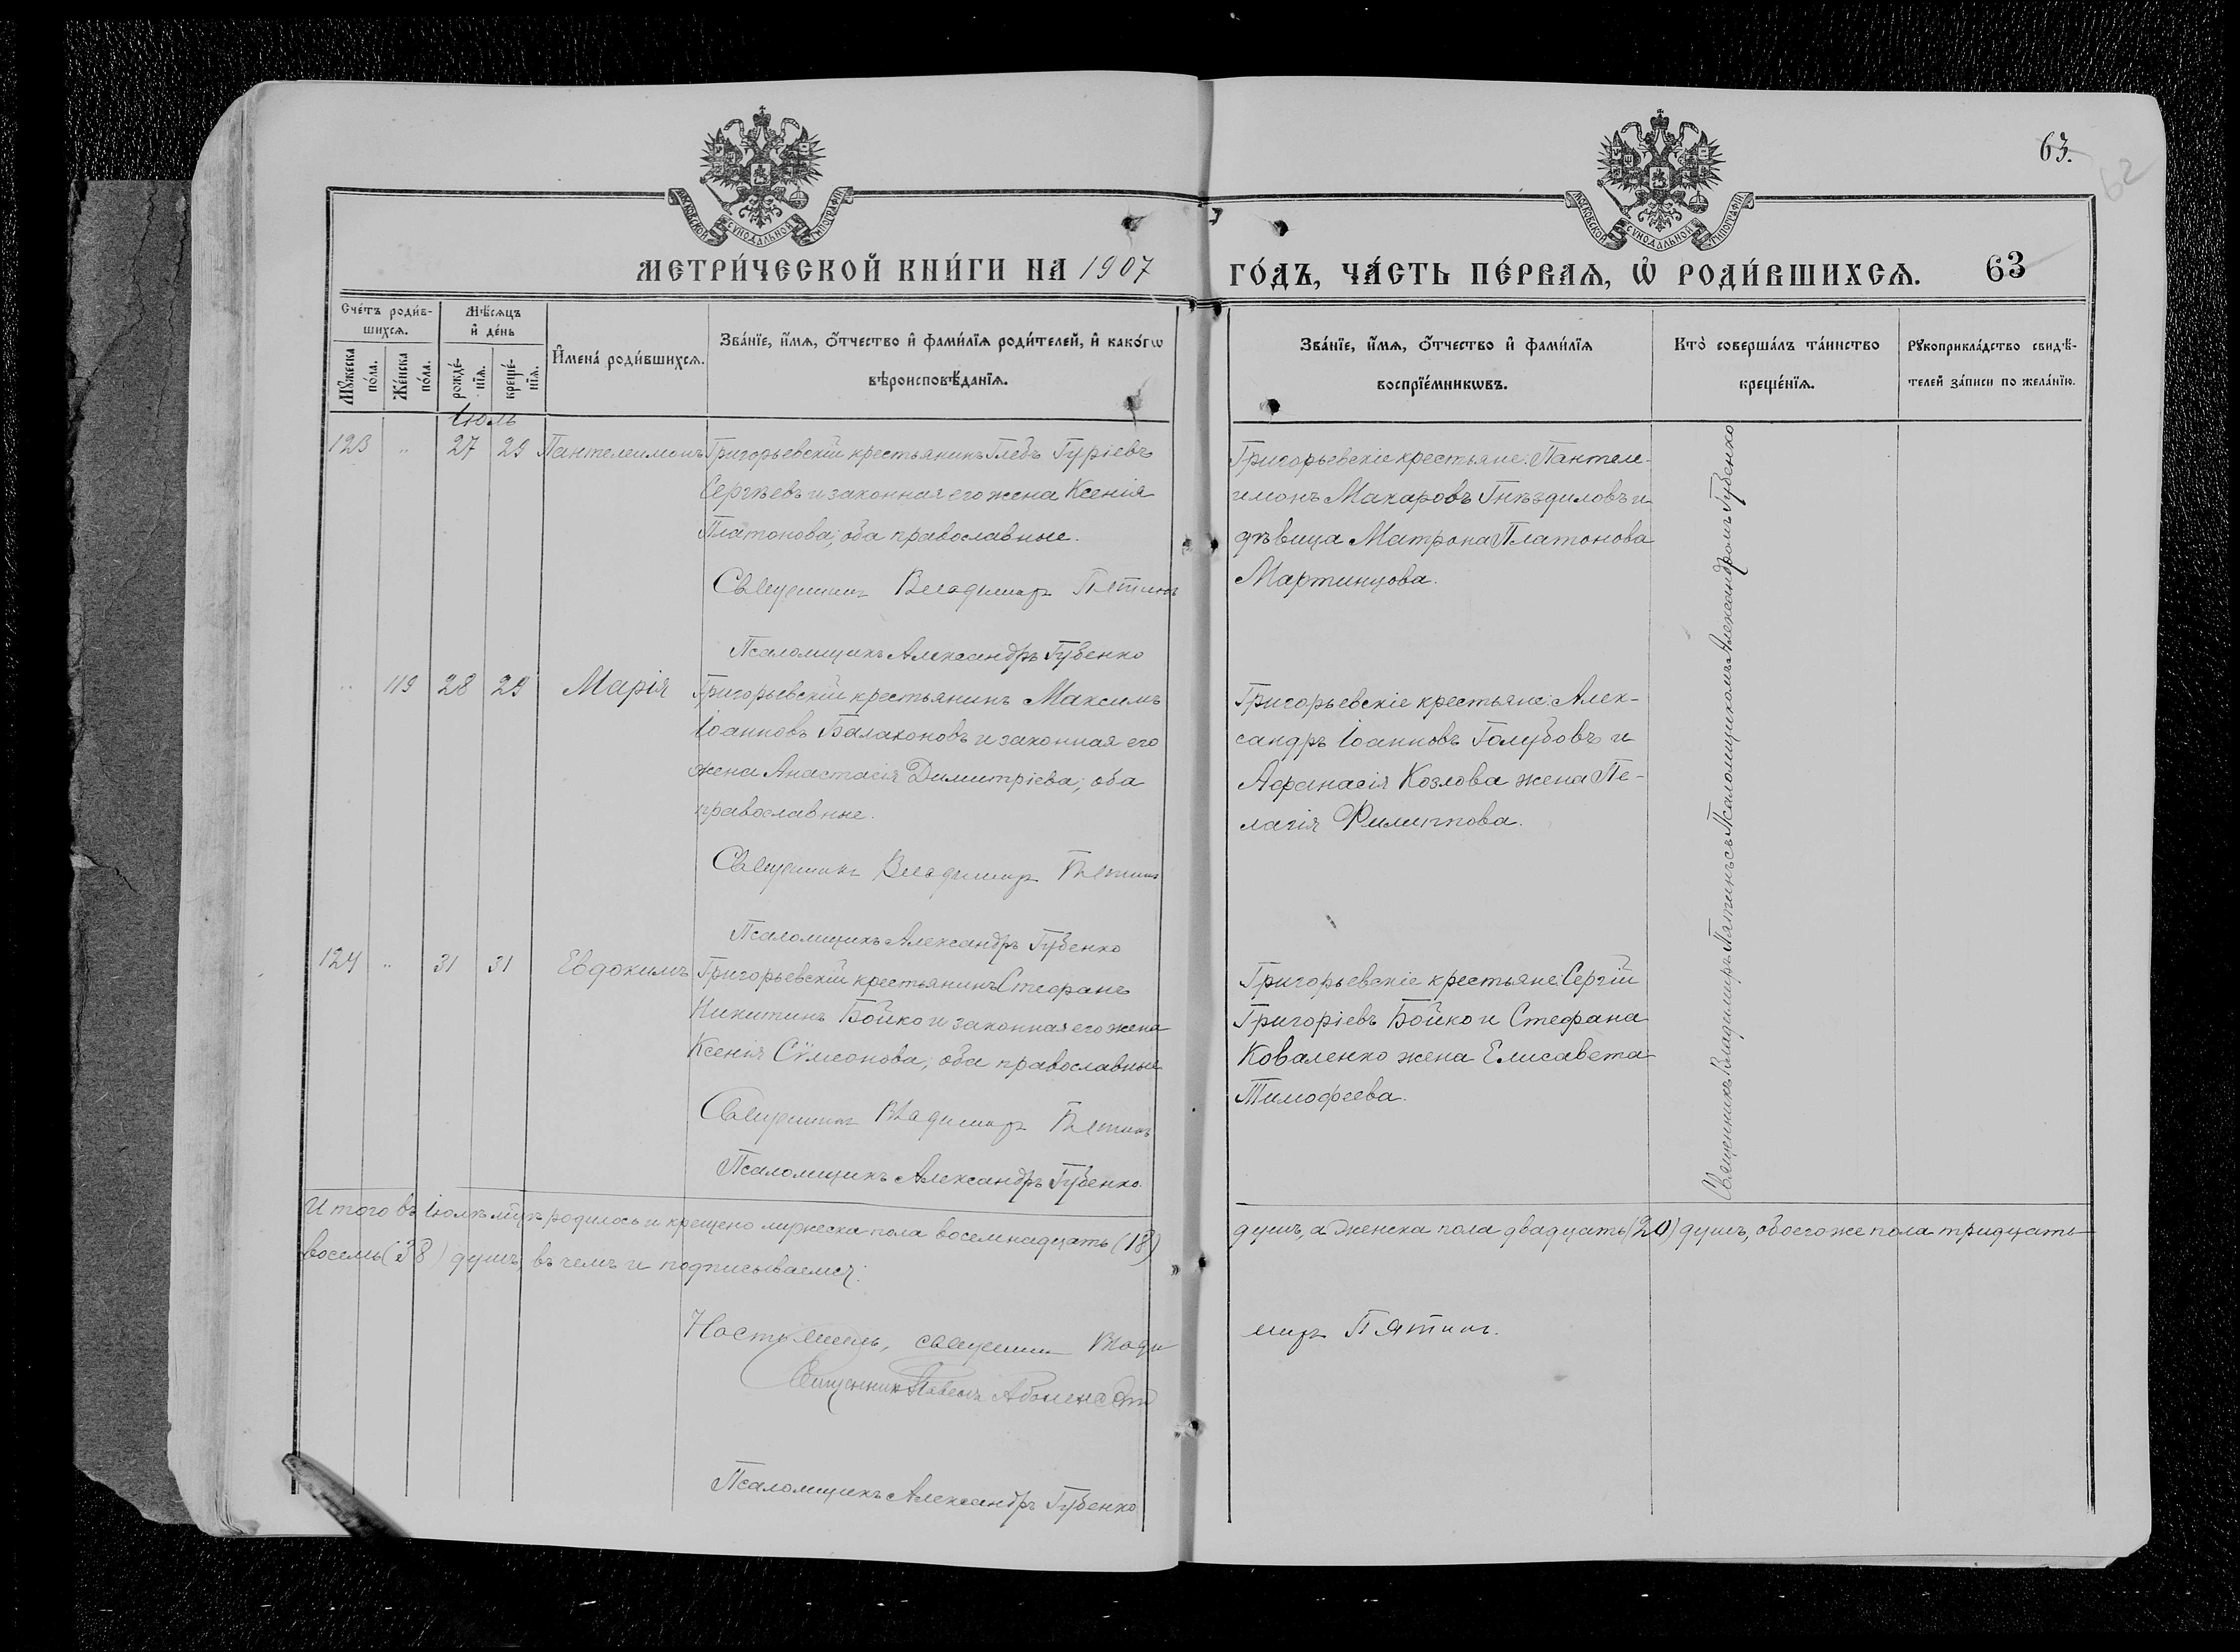 63.
62
МОСКОВСКОЙ СѴНОДАЛЬНОЙ ТИПОГРАФІИ
МОСКОВСКОЙ СѴНОДАЛЬНОЙ ТИПОГРАФІИ
МЕТРИ́ЧЕСКОЙ КНИ́ГИ НА 1907
ГО́ДЪ, ЧА́СТЬ ПЕ́РВАѦ, Ѡ҆ РОДИ́ВШИХСѦ. 63
Сче́тъ роди́в-
шихсѧ.
Мꙋ́жеска по́ла.
Же́нска по́ла.
Мѣ́сѧцъ
и҆ де́нь
рожде́-
нїѧ.
креще́-
нїѧ.
И҆мена̀ роди́вшихсѧ.
Зва́нїе, и҆́мѧ, ѻ҆́тчество и҆ фами́лїѧ роди́телей, и҆ како́гѡ
вѣроисповѣ́данїѧ.
Зва́нїе, и҆́мѧ, ѻ҆́тчество и҆ фами́лїѧ
воспрїе́мникѡвъ.
Кто̀ соверша́лъ та́инство
креще́нїѧ.
Рꙋкоприкла́дство свидѣ́-
телей за́писи по жела́нїю.
Іюль
123 " 27 29 Пантелеимонъ
Григорьевскій крестьянинъ Глебъ Гуріевъ
Сергѣевъ и законная его жена Ксенія
Платонова; оба православные.
Священникъ Владимиръ Пятинъ
Псаломщикъ Александръ Губенко
Григорьевскіе крестьяне: Пантеле-
имонъ Макаровъ Гнѣздиловъ и
дѣвица Матрона Платонова
Мартинцова.
" 119 28 29 Марія
Григорьевскій крестьянинъ Максимъ
Іоанновъ Балахоновъ и законная его
жена Анастасія Димитріева; оба
православные.
Священникъ Владимиръ Пятинъ
Псаломщикъ Александръ Губенко
Григорьевскіе крестьяне: Алек-
сандръ Іоанновъ Голубовъ и
Афанасія Козлова жена Пе-
лагія Филиппова.
124 " 31 31 Евдокимъ
Григорьевскій крестьянинъ Стефанъ
Никитинъ Бойко и законная его жена
Ксенія Сѵмеонова; оба православные
Священникъ Владимиръ Пятинъ
Псаломщикъ Александръ Губенко.
Григорьевскіе крестьяне: Сергій
Григоріевъ Бойко и Стефана
Коваленко жена Елисавета
Тимофеева.
Священникъ Владимиръ Пятинъ съ Псаломщикомъ Александромъ Губенко
Итого въ Іюлѣ м-цѣ родилось и крещено мужеска пола восемнадцать (18)
душъ, а женска пола двадцать (20) душъ, обоего же пола тридцать
восемь (38) душъ, въ чемъ и подписываемся:
Настоятель, священникъ Влади
миръ Пятинъ.
Священникъ Павелъ
Псаломщикъ Александръ Губенко